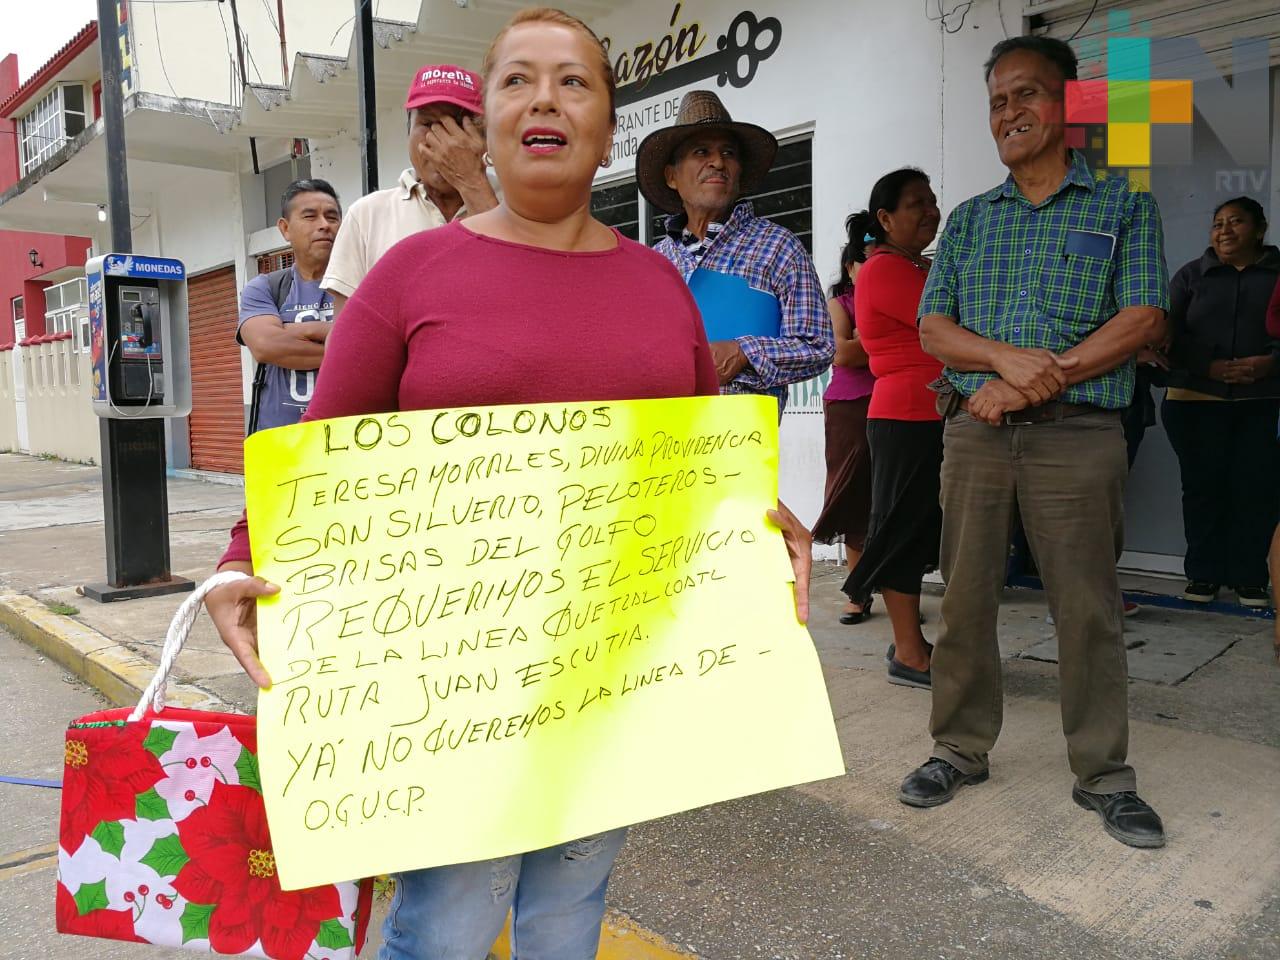 morena
azón
RANTE DE
mida
RTV
MONEDAS
LOS COLONOS
TERESA MORALES, DIVINA PROVIDENCIA
SAN SILVERIO, PELOTEROS -
BRISAS DEL GOLFO
REQUERIMOS EL SERVICIO
DE LA LINEA QUETZALCOATL
RUTA JUAN ESCUTIA.
YÁ NO QUEREMOS LA LINEA DE -
O.G.U.C.P.